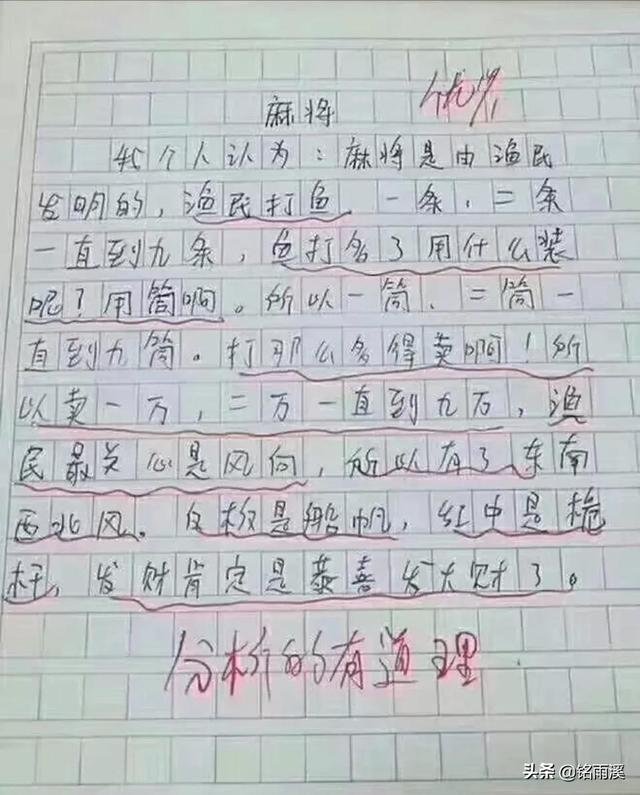 优
麻将
我个人认为：麻将是由渔民
发明的，渔民打鱼，一条、二条
一直到九条，鱼打多了用什么装
呢？用筒啊。所以一筒、二筒一
直到九筒。打那么多得卖啊！所
以卖一万，二万一直到九万，渔
民最关心是风向，所以有了东南
西北风。白板是船帆，红中是桅
杆，发财肯定是恭喜发大财了。
分析的有道理
头条 @铭雨溪